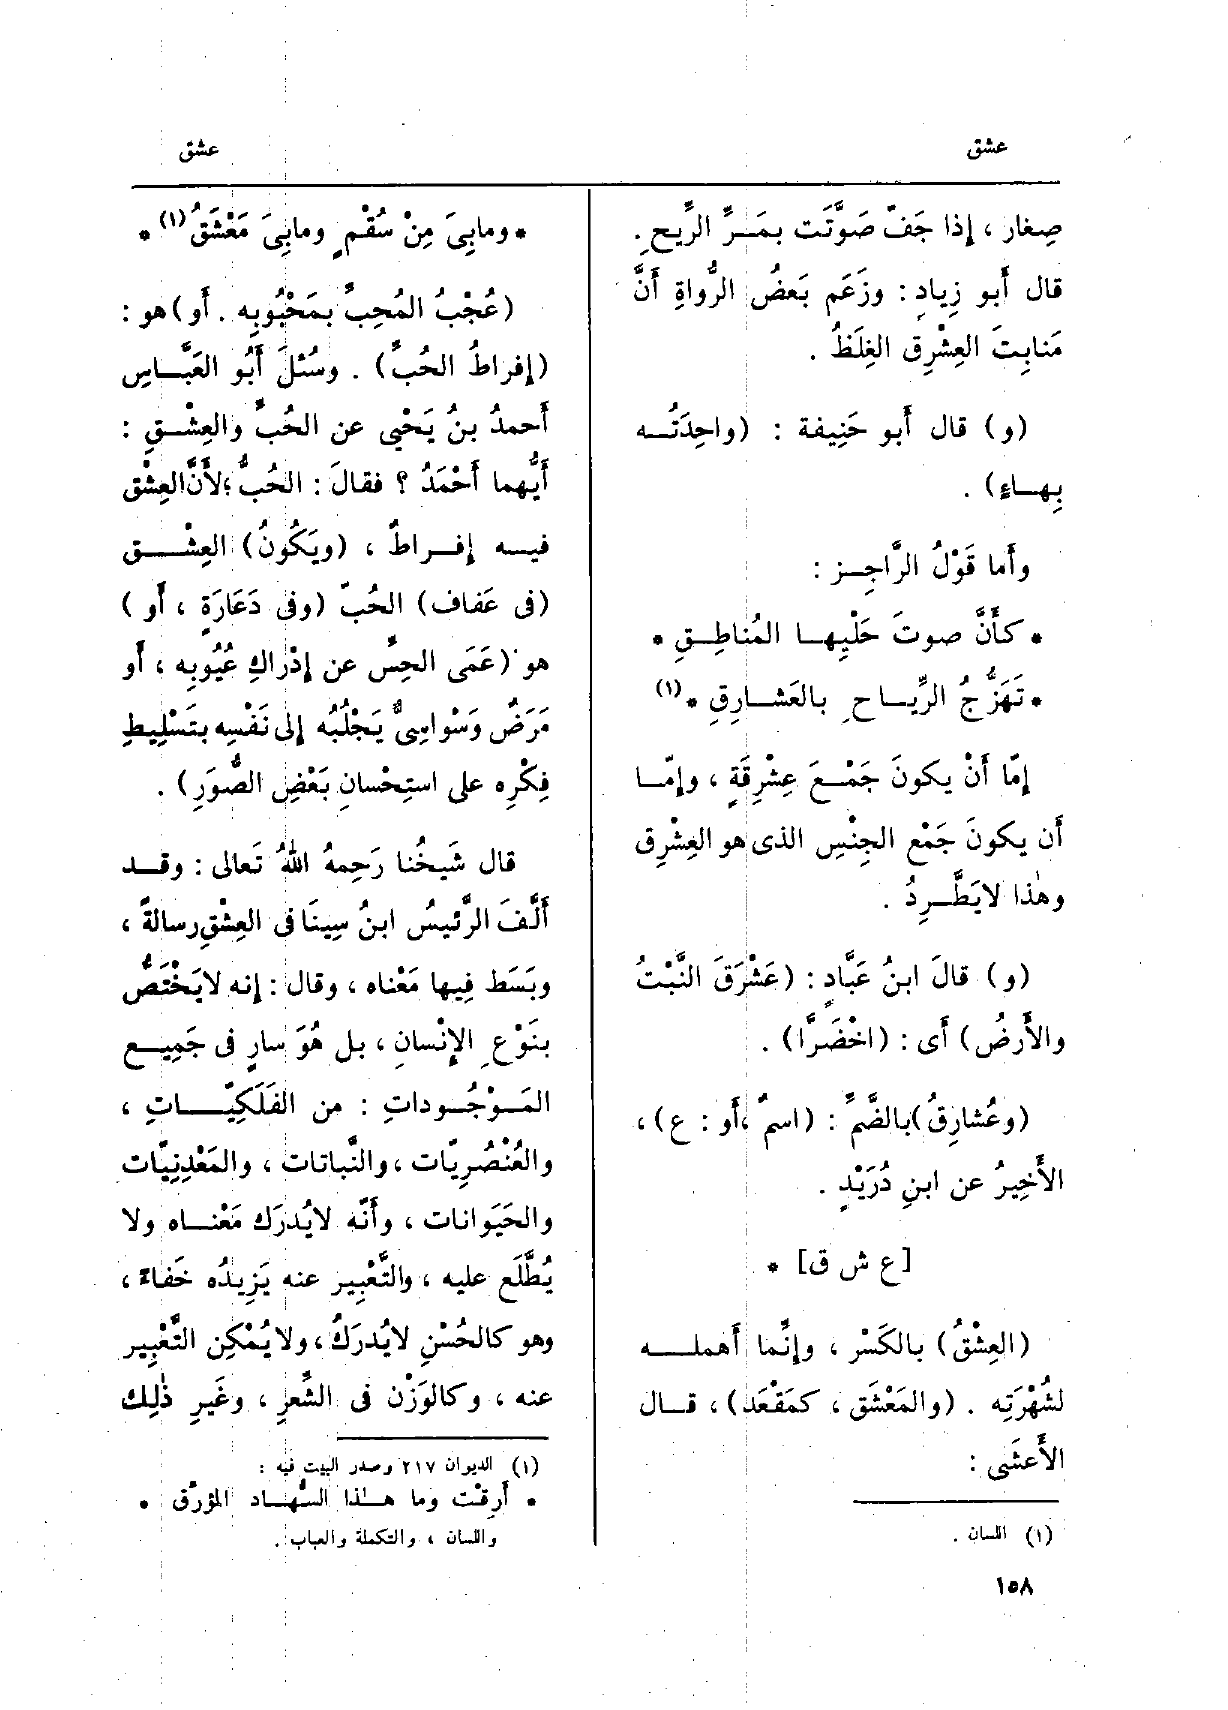 عشق
عشق
صِغار ، إذا جَفّ صَوَّتَت بمَرِّ الرِّيح ِ.
قال أَبو زِيادٍ : وزَعَم بَعضُ الرُّواةِ أَنَّ
مَنابِتَ العِشْرِق الغِلَظُ .
(و) قال أَبو حَنِيفة : (واحِدَتُه
بِهاءٍ) .
وأَما قَوْلُ الرَّاجِز :
* كأَنَّ صوتَ حَلْيِها المُناطِقِ *
* تَهَزُّجُ الرِّياح ِ بالعَشارِقِ * (١)
إمّا أَنْ يكونَ جَمْعَ عِشْرِقَةٍ ، وإمّا
أَن يكونَ جَمْع الجِنْسِ الذى هو العِشْرِق
وهٰذا لايَطَّرِدُ .
(و) قالَ ابنُ عَبَّادٍ : (عَشْرَقَ النَّبْتُ
والأَرضُ) أَى : (اخْضَرَّا) .
(وعُشارِقُ) بالضَّمِّ : (اسمٌ ،أَو : ع) ،
الأَخِيرُ عن ابنِ دُرَيْدٍ .
[ع ش ق] *
(العِشْقُ) بالكَسْر ، وإنَّما أَهمله
لشُهْرَتِه . (والمَعْشَق ، كمَقْعَد) ، قال
الأَعشَى :
(١) اللسان .
١٥٨
* ومابِىَ مِنْ سُقْمٍ ومابِىَ مَعْشَقُ (١) *
(عُجْبُ المُحِبِّ بمَحْبُوبِه . أَو) هو :
(إفراطُ الحُبِّ) . وسُئلَ أَبُو العَبَّاسِ
أَحمدُ بنُ يَحْيٰى عن الحُبِّ والعِشْقِ :
أَيُّهما أَحْمَدُ ؟ فقالَ : الحُبُّ ؛لأَنَّ العِشْق
فيه إفراطٌ ، (ويَكُونُ) العِشْق
(فى عَفاف) الحُبّ (وفى دَعَارَةٍ ، أَو )
هو (عَمَى الحِسِّ عن إدْراكِ عُيُوبِه ، أَو
مَرَضٌ وَسْواسِىٌّ يَجْلُبُه إلى نَفْسِه بتَسْلِيطِ
فِكْرِه على استِحْسانِ بَعْضِ الصُّوَرِ) .
قال شَيخُنا رَحِمهُ اللهُ تَعالى : وقد
أَلَّفَ الرَّئيسُ ابنُ سِينَا فى العِشْقِ رسالةً ،
وبَسَط فِيها مَعْناه ، وقال : إنه لايَخْتَصُّ
بنَوْع ِ الإنْسانِ ، بل هُوَ سارٍ فى جَمِيع
المَوْجُوداتِ : من الفَلَكِيّاتِ ،
والعُنْصُرِيّات ، والنَّباتات ، والمَعْدِنِيّات
والحَيَوانات ، وأَنّه لايُدرَك مَعْناه ولا
يُطَّلَع عليه ، والتَّعْبِير عنه يَزِيدُه خَفاءً ،
وهو كالحُسْنِ لايُدرَكُ ، ولا يُمْكِن التَّعْبِير
عنه ، وكالوَزْن فى الشِّعرِ ، وغَيرِ ذٰلِك
(١) الديوان ٢١٧ وصدر البيت فيه :
* أَرِقْت وما هٰذا السُّهاد المؤرّق *
واللسان ، والتكملة والعباب .